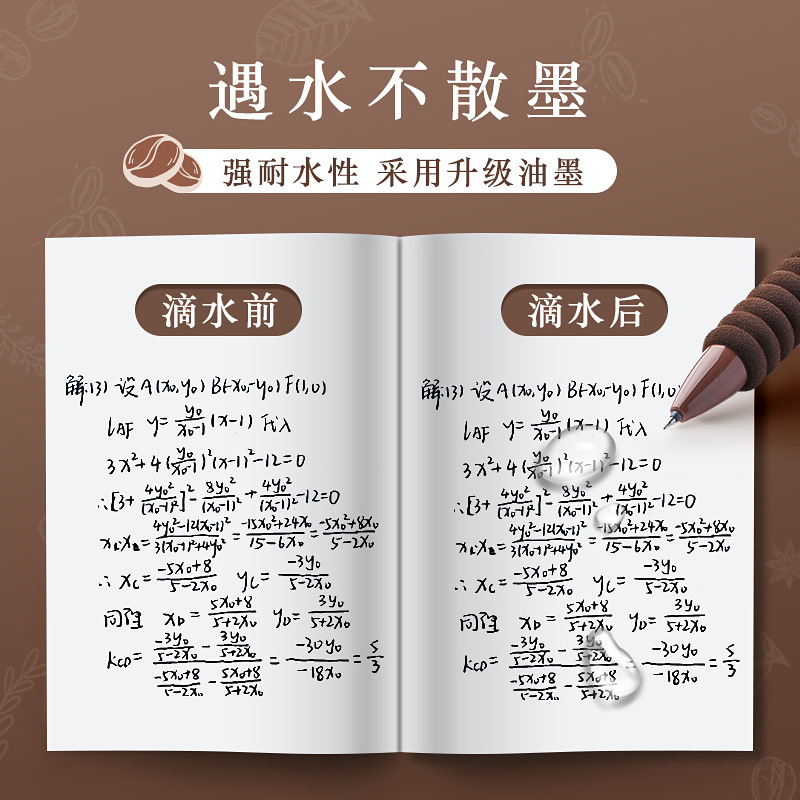 遇水不散墨
强耐水性 采用升级油墨
滴水前
解:(3) 设A(x₀,y₀) B(-x₀,-y₀) F(1,0)
lAF y=y₀/(x₀-1)(x-1) 代入
3x²+4(y₀/(x₀-1))²(x-1)²-12=0
∴[3+4y₀²/(x₀-1)²]²-8y₀²/(x₀-1)²+4y₀²/(x₀-1)²-12=0
=(4y₀²-12(x₀-1)²)/(3(x₀-1)²+4y₀²)=(-15x₀²+24x₀)/(15-6x₀)=(-5x₀²+8x₀)/(5-2x₀)
∴ xC=(-5x₀+8)/(5-2x₀) yC=(-3y₀)/(5-2x₀)
同理 xD=(5x₀+8)/(5+2x₀) yD=3y₀/(5+2x₀)
kCD=((-3y₀)/(5-2x₀)-3y₀/(5+2x₀))/((-5x₀+8)/(5-2x₀)-(5x₀+8)/(5+2x₀))=(-30y₀)/(-18x₀)=5/3
滴水后
解:(3) 设A(x₀,y₀) B(-x₀,-y₀) F(1,0)
lAF y=y₀/(x₀-1)(x-1) 代入
3x²+4(y₀/(x₀-1))²(x-1)²-12=0
∴[3+4y₀²/(x₀-1)²]²-8y₀²/(x₀-1)²+4y₀²/(x₀-1)²-12=0
=(4y₀²-12(x₀-1)²)/(3(x₀-1)²+4y₀²)=(-15x₀²+24x₀)/(15-6x₀)=(-5x₀²+8x₀)/(5-2x₀)
∴ xC=(-5x₀+8)/(5-2x₀) yC=(-3y₀)/(5-2x₀)
同理 xD=(5x₀+8)/(5+2x₀) yD=3y₀/(5+2x₀)
kCD=((-3y₀)/(5-2x₀)-3y₀/(5+2x₀))/((-5x₀+8)/(5-2x₀)-(5x₀+8)/(5+2x₀))=(-30y₀)/(-18x₀)=5/3